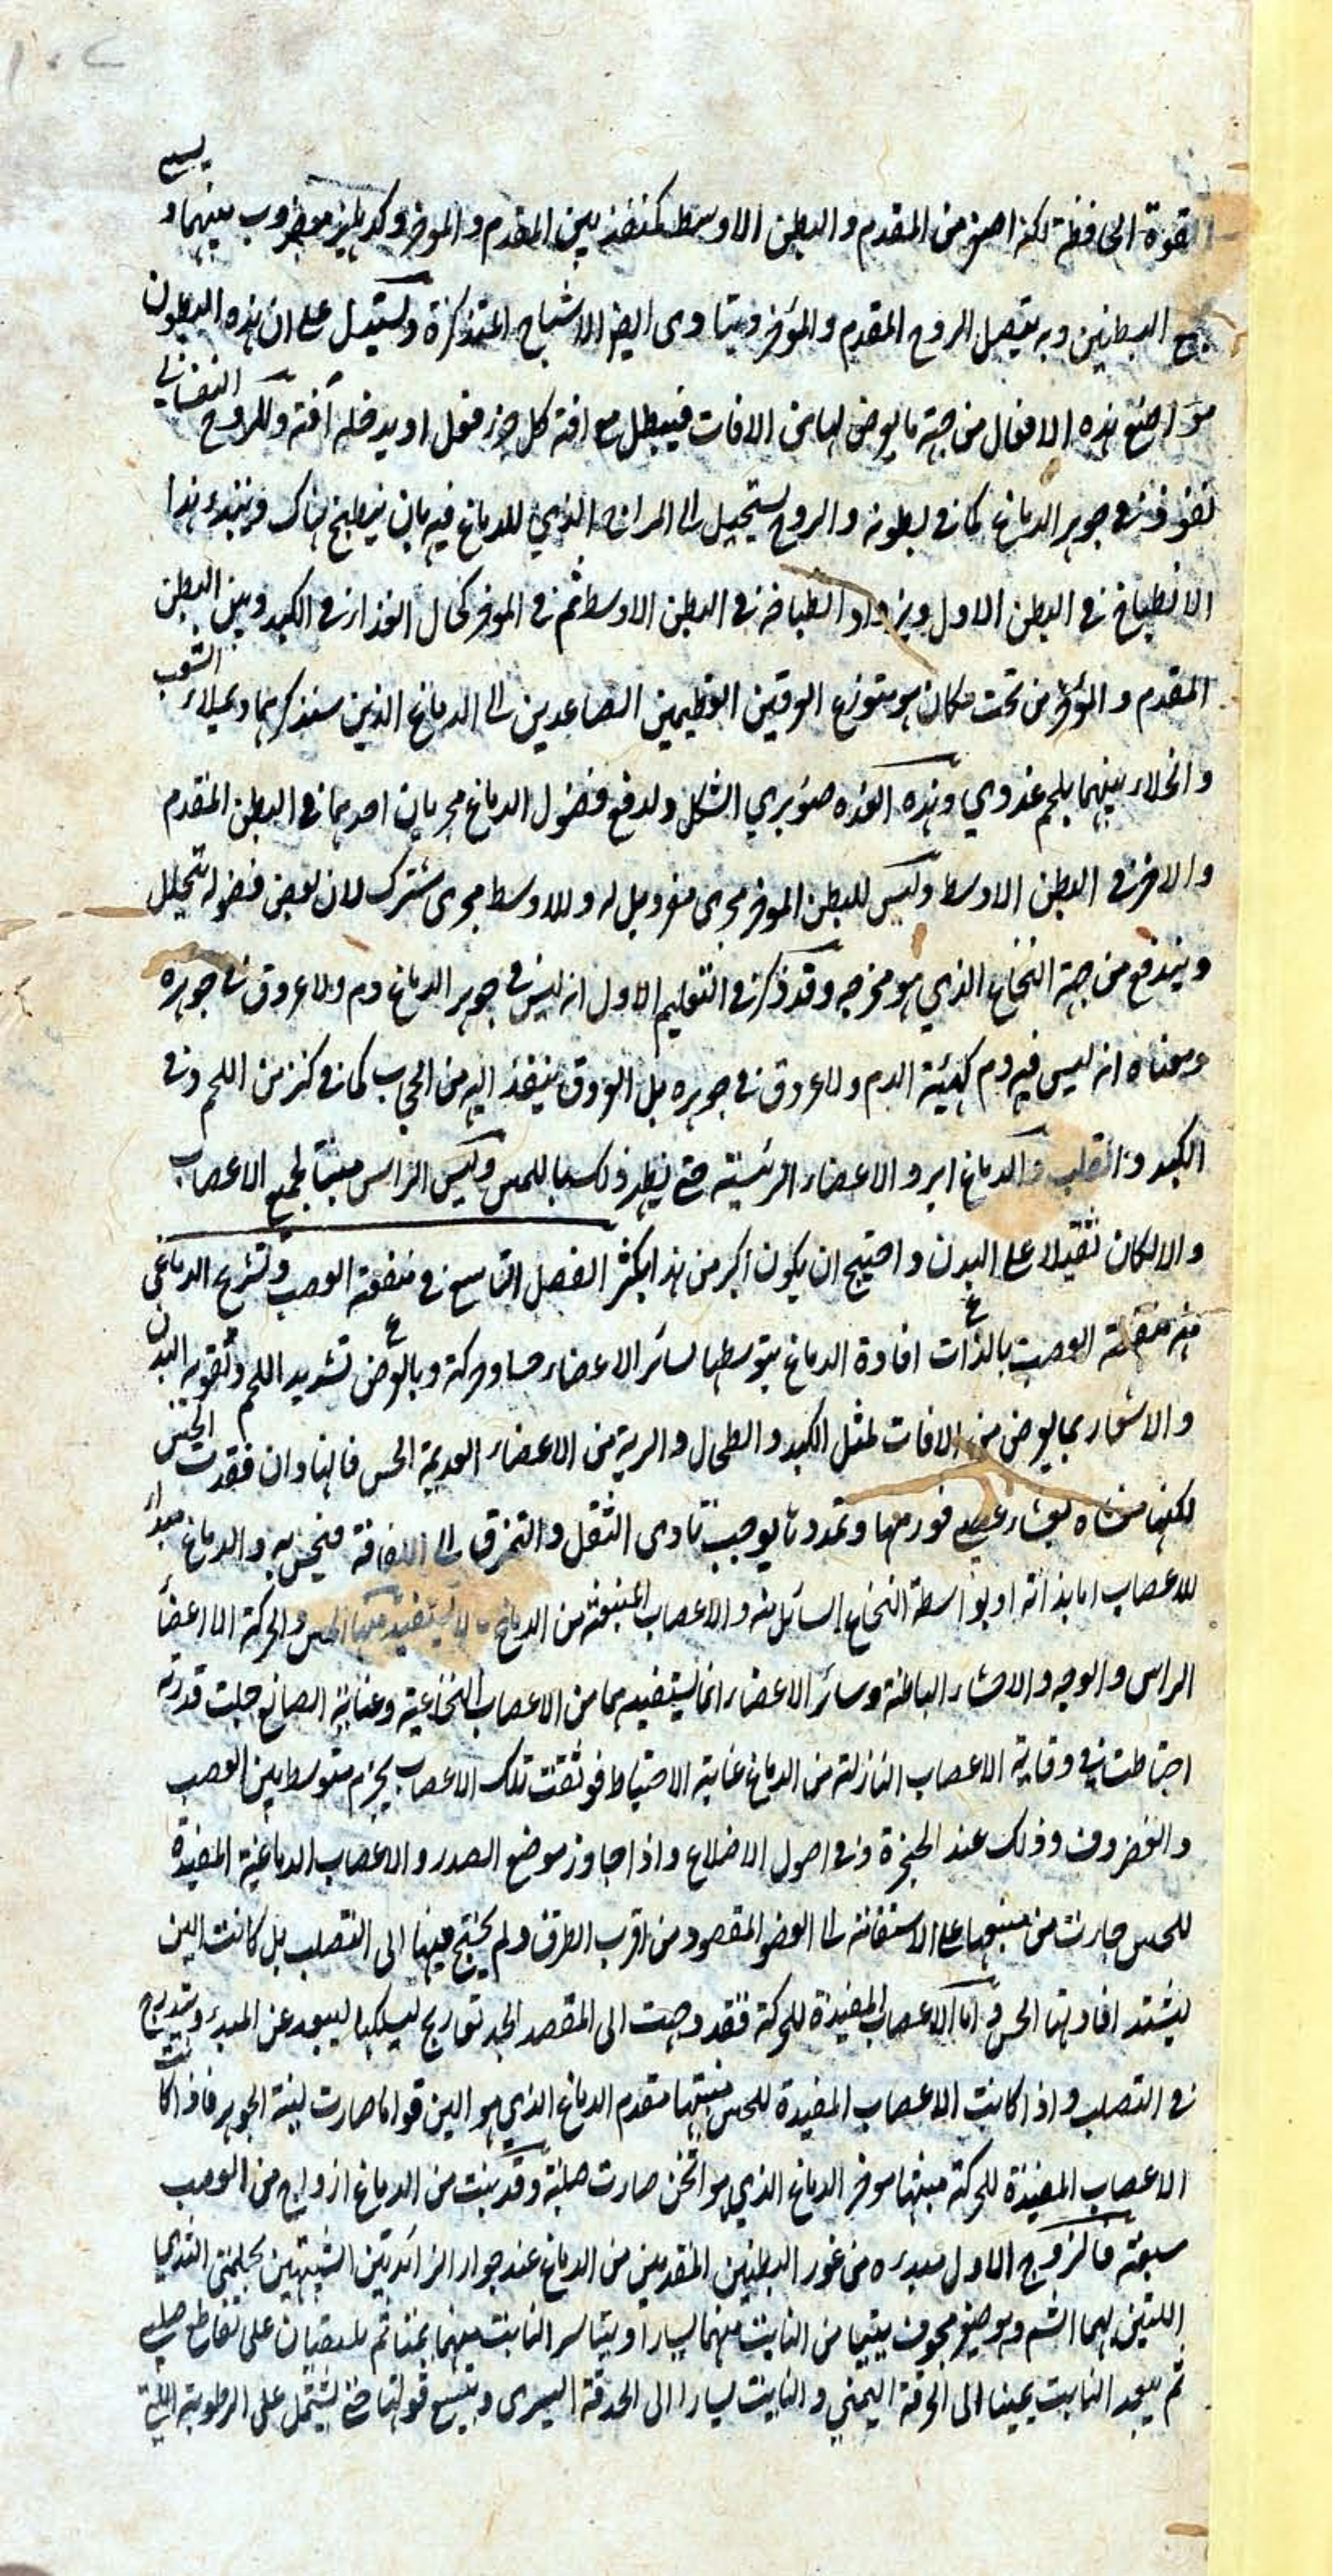 يسمى
القوة الحافظة لكنه اصغر من المقدم والبطن الاوسط كمنفذ بين المقدم والموخر وكدهليز مضروب بينهما و
البطنين وبه يتصل الروح المقدم والمؤخر ويتادى ايضا الاشباح المتذكرة ويستدل على ان هذه البطون
مواضع هذه الافعال من جهة ما يعرض لها من الافات فيبطل مع افة كل جزء فعل او يدخله آفة وللروح النفساني
نفوذ في جوهر الدماغ كما في بطونه والروح يستحيل الى المزاج الذي للدماغ فيه بان ينطبخ هناك ويبتدء هذا
الانطباخ في البطن الاول ويزداد انطباخه في البطن الاوسط ثم في الموخر كحال الغذاء في الكبد وبين البطن
المقدم والمؤخر من تحت مكان هو متوزع العرقين العظيمين الصاعدين الى الدماغ الذين سنذكرهما ويملاء الشعب
والخلاء بينهما بلحم غددي وهذه الغدة صنوبري الشكل ولدفع فضول الدماغ مجريان احدهما في البطن المقدم
والاخر في البطن الاوسط وليس للبطن الموخر مجرى مفرد بل له وللاوسط مجرى مشترك لان بعض فضوله تتحلل
ويندفع من جهة النخاع الذي هو مخرجه وقد ذكر في التعليم الاول انه ليس في جوهر الدماغ دم ولا عروق في جوهره
ومعناه انه ليس فيه دم كهيئة الدم ولا عروق في جوهره بل العروق ينفذ اليه من الحجاب كما في كنز من اللحم وفي
الكبد والقلب والدماغ ابرد الاعضاء الرئيسية حتى يظهر ذلك باللمس وليس الراس منبتا لجميع الاعصاب
والا لكان ثقيلا على البدن واحتيج ان يكون اكبر من هذا بكثير الفصل التاسع في منفعة العصب وتشريح الدماغي
منه منفعة العصب بالذات افادة الدماغ بتوسطها لسائر الاعضاء حسا وحركة وبالعرض تشديد اللحم وتقوية البدن
والاشعار بما يعرض من الافات لمثل الكبد والطحال والرية من الاعضاء العديمة الحس فانها وان فقدت الحس
لكنها مغشاه بغشاء عصبي فورمها وتمددها يوجب تادى الثقل والتمزق الى اللفافة فيحس به والدماغ مبداء
للاعصاب اما بذاته او بواسطة النخاع السائل منه والاعصاب المنبعثة من الدماغ لا يستفيد منها الحس والحركة الا اعضاء
الراس والوجه والاحشاء الباطنة وسائر الاعضاء انما يستفيدهما من الاعصاب النخاعية وعناية الصانع جلت قدرته
احتاطت في وقاية الاعصاب النازلة من الدماغ غاية الاحتياط فوثقت تلك الاعصاب بجرم متوسط بين العصب
والغضروف وذلك عند الحنجرة وفي اصول الاضلاع واذا جاوز موضع الصدر والاعصاب الدماغية المفيدة
للحس جارت من منبعها على الاستقامة الى العضو المقصود من اقرب الطرق ولم يحتج فيها الى التصلب بل كانت الين
ليشتد افادتها الحس واما الاعصاب المفيدة للحركة فقد وجهت الى المقصد الجد تعاريج ليسلكها ليبعد عن المبدء ويتدرج
في التصلب واذا كانت الاعصاب المفيدة للحس منبتها مقدم الدماغ الذي هو الين قواما صارت لينة الجوهر فاذا كانت
الاعصاب المفيدة للحركة منبتها موخر الدماغ الذي هو اثخن صارت صلبة وقد ينبت من الدماغ ازواج من العصب
سبعة فالزوج الاول مبدءه من غور البطنين المقدمين من الدماغ عند جوار الزائدتين الشبيهتين بحلمتي الثدي
اللتين بهما الشم وهو صغير مجوف يتيامن النابت منهما يسارا ويتياسر النابت منهما يمينا ثم يلتقيان على تقاطع صليبي
ثم يبعد النابت يمينا الى الحدقة اليمنى والنابت يسارا الى الحدقة اليسرى ويتسع فوهتها حتى يشتمل على الرطوبة التي